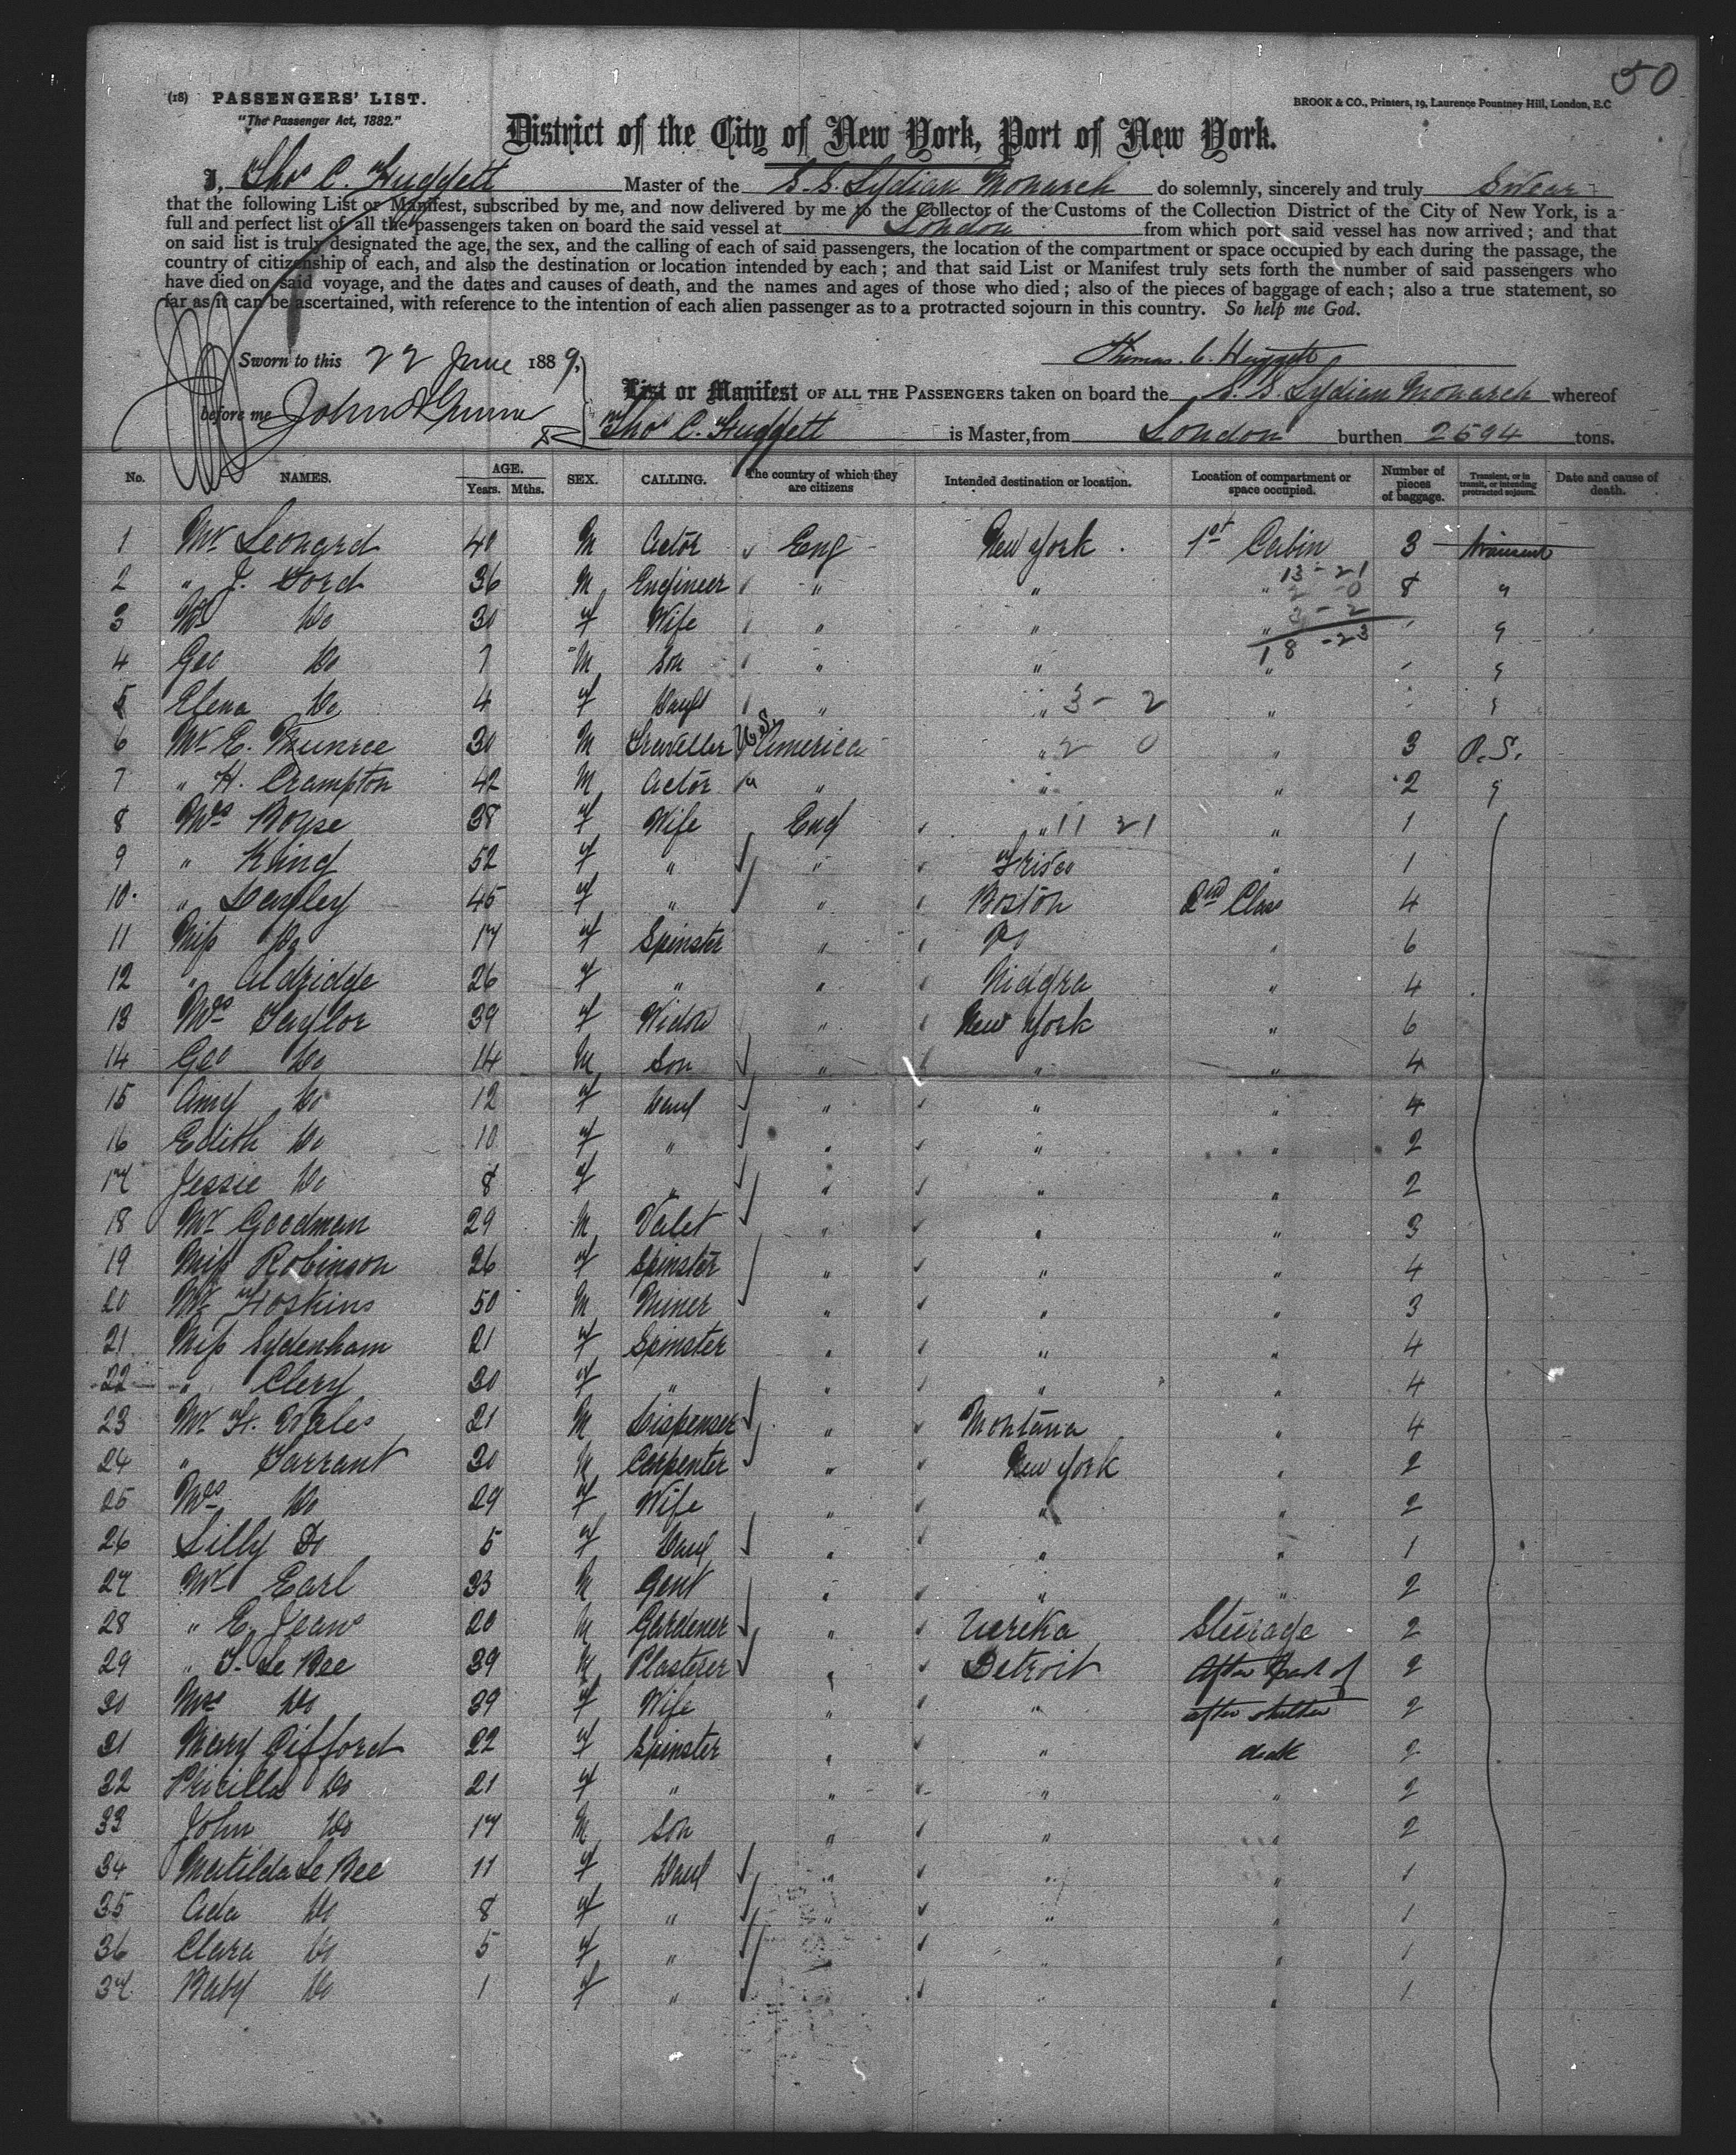 50
(18) PASSENGERS' LIST.
"The Passenger Act, 1882."
BROOK & CO., Printers, 19, Laurence Pountney Hill, London, E.C
District of the City of New York, Port of New York.
I, Thos C. Huggett Master of the S.S. Lydian Monarch do solemnly, sincerely and truly Swear
that the following List or Manifest, subscribed by me, and now delivered by me to the Collector of the Customs of the Collection District of the City of New York, is a
full and perfect list of all the passengers taken on board the said vessel at London from which port said vessel has now arrived; and that
on said list is truly designated the age, the sex, and the calling of each of said passengers, the location of the compartment or space occupied by each during the passage, the
country of citizenship of each, and also the destination or location intended by each; and that said List or Manifest truly sets forth the number of said passengers who
have died on said voyage, and the dates and causes of death, and the names and ages of those who died; also of the pieces of baggage of each; also a true statement, so
far as it can be ascertained, with reference to the intention of each alien passenger as to a protracted sojourn in this country. So help me God.
Thomas. C. Huggett
Sworn to this 22 June 1889.
before me John Gunn
List or Manifest OF ALL THE PASSENGERS taken on board the S.S. Lydian Monarch whereof
Thos C. Huggett is Master, from London burthen 2594 tons.
No. NAMES. AGE. Years. Mths. SEX. CALLING. The country of which they are citizens Intended destination or location. Location of compartment or space occupied. Number of pieces of baggage. Transient, or in transit, or intending protracted sojourn. Date and cause of death.
1 Mr Leonard 40 M Actor Eng New York. 1st Cabin 3 transient
13-21
2 " J. Ford 36 M Engineer " " " 2 0 8 "
3 Mrs Do 30 f Wife " " " 3-2 "
18-23
4 Geo Do 7 M Son " " " "
5 Elena Do 4 f Daugt " " 3-2 " "
6 Mr E. Munroe 30 M Traveller U.S. America " 2 0 " 3 P.S.
7 " H. Crampton 42 M Actor " " " 2 "
8 Mrs Boyse 38 f Wife Eng " 11 21 " 1
9 " King 52 f " " Frisco " 1
10. " Langley 45 f " " Boston 2nd Class 4
11 Miss Do 17 f Spinster " Do " 6
12 " Aldridge 26 f " " Niagra " 4
13 Mrs Taylor 39 f Widow " New York " 6
14 Geo Do 14 M Son " " " 4
15 Amy Do 12 f Daug " " " 4
16 Edith Do 10 f " " " " 2
17 Jessie Do 8 f " " " " 2
18 Mr Goodman 29 M Valet " " " 3
19 Miss Robinson 26 f Spinster " " " 4
20 Mr Hoskins 50 M Miner " " " 3
21 Miss Sydenham 21 f Spinster " " " 4
22 " Clery 30 f " " " " 4
23 Mr H. Wales 21 M Dispenser " Montana " 4
24 " Tarrant 30 M Carpenter " New York " 2
25 Mrs Do 29 f Wife " " " 2
26 Lilly Do 5 f Daug " " " 1
27 Mr Earl 33 M Gent " " " 2
28 " E. Jeans 20 M Gardener " Ureka Steerage 2
29 " T. Le Bee 39 M Plasterer " Detroit After part of 2
30 Mrs Do 39 f Wife " " after shelter 2
31 Mary Gifford 22 f Spinster " " deck 2
32 Pricilla Do 21 f " " " " 2
33 John Do 17 M Son " " " 2
34 Matilda Le Bee 11 f Daug " " " 1
35 Ada Do 8 f " " " " 1
36 Clara Do 5 f " " " " 1
37 Baby Do 1 f " " " 1